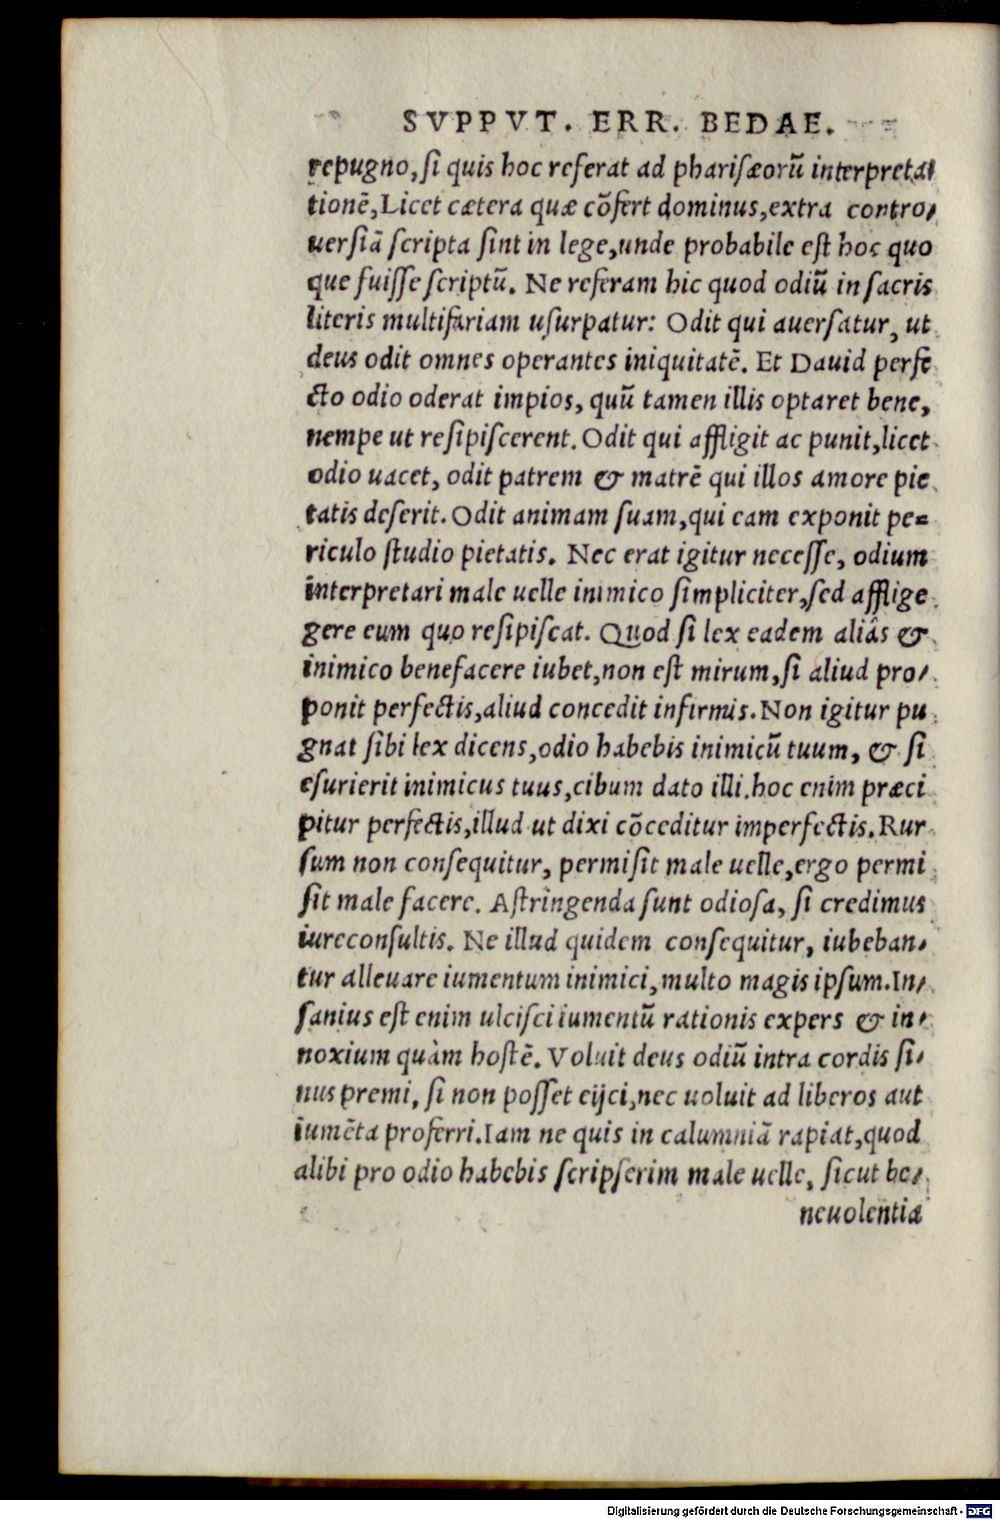 SVPPVT. ERR. BEDAE.
repugno, ſi quis hoc referat ad phariſæorũ interpreta⸗
tionẽ, Licet cætera quæ cõfert dominus, extra contro⸗
uerſiã ſcripta ſint in lege, unde probabile eſt hoc quo
que fuiſſe ſcriptũ. Ne referam hic quod odiũ in ſacris
literis multifariam uſurpatur: Odit qui auerſatur, ut
deus odit omnes operantes iniquitatẽ. Et Dauid perfe
cto odio oderat impios, quũ tamen illis optaret bene,
nempe ut reſipiſcerent. Odit qui affligit ac punit, licet
odio uacet, odit patrem & matrẽ qui illos amore pie
tatis deſerit. Odit animam ſuam, qui eam exponit pe⸗
riculo ſtudio pietatis. Nec erat igitur neceſſe, odium
interpretari male uelle inimico ſimpliciter, ſed afflige
gere eum quo reſipiſcat. Quod ſi lex eadem aliâs &
inimico benefacere iubet, non eſt mirum, ſi aliud pro⸗
ponit perfectis, aliud concedit infirmis. Non igitur pu
gnat ſibi lex dicens, odio habebis inimicũ tuum, & ſi
eſurierit inimicus tuus, cibum dato illi. hoc enim præci
pitur perfectis, illud ut dixi cõceditur imperfectis. Rur
ſum non conſequitur, permiſit male uelle, ergo permi
ſit male facere. Aſtringenda ſunt odioſa, ſi credimus
iureconſultis. Ne illud quidem conſequitur, iubeban⸗
tur alleuare iumentum inimici, multo magis ipſum. In⸗
ſanius eſt enim ulciſci iumentũ rationis expers & in⸗
noxium quàm hoſtẽ. Voluit deus odiũ intra cordis ſi⸗
nus premi, ſi non poſſet eijci, nec uoluit ad liberos aut
iumẽta proferri. Iam ne quis in calumniã rapiat, quod
alibi pro odio habebis ſcripſerim male uelle, ſicut be⸗
neuolentia
Digitalisierung gefördert durch die Deutsche Forschungsgemeinschaft - DFG